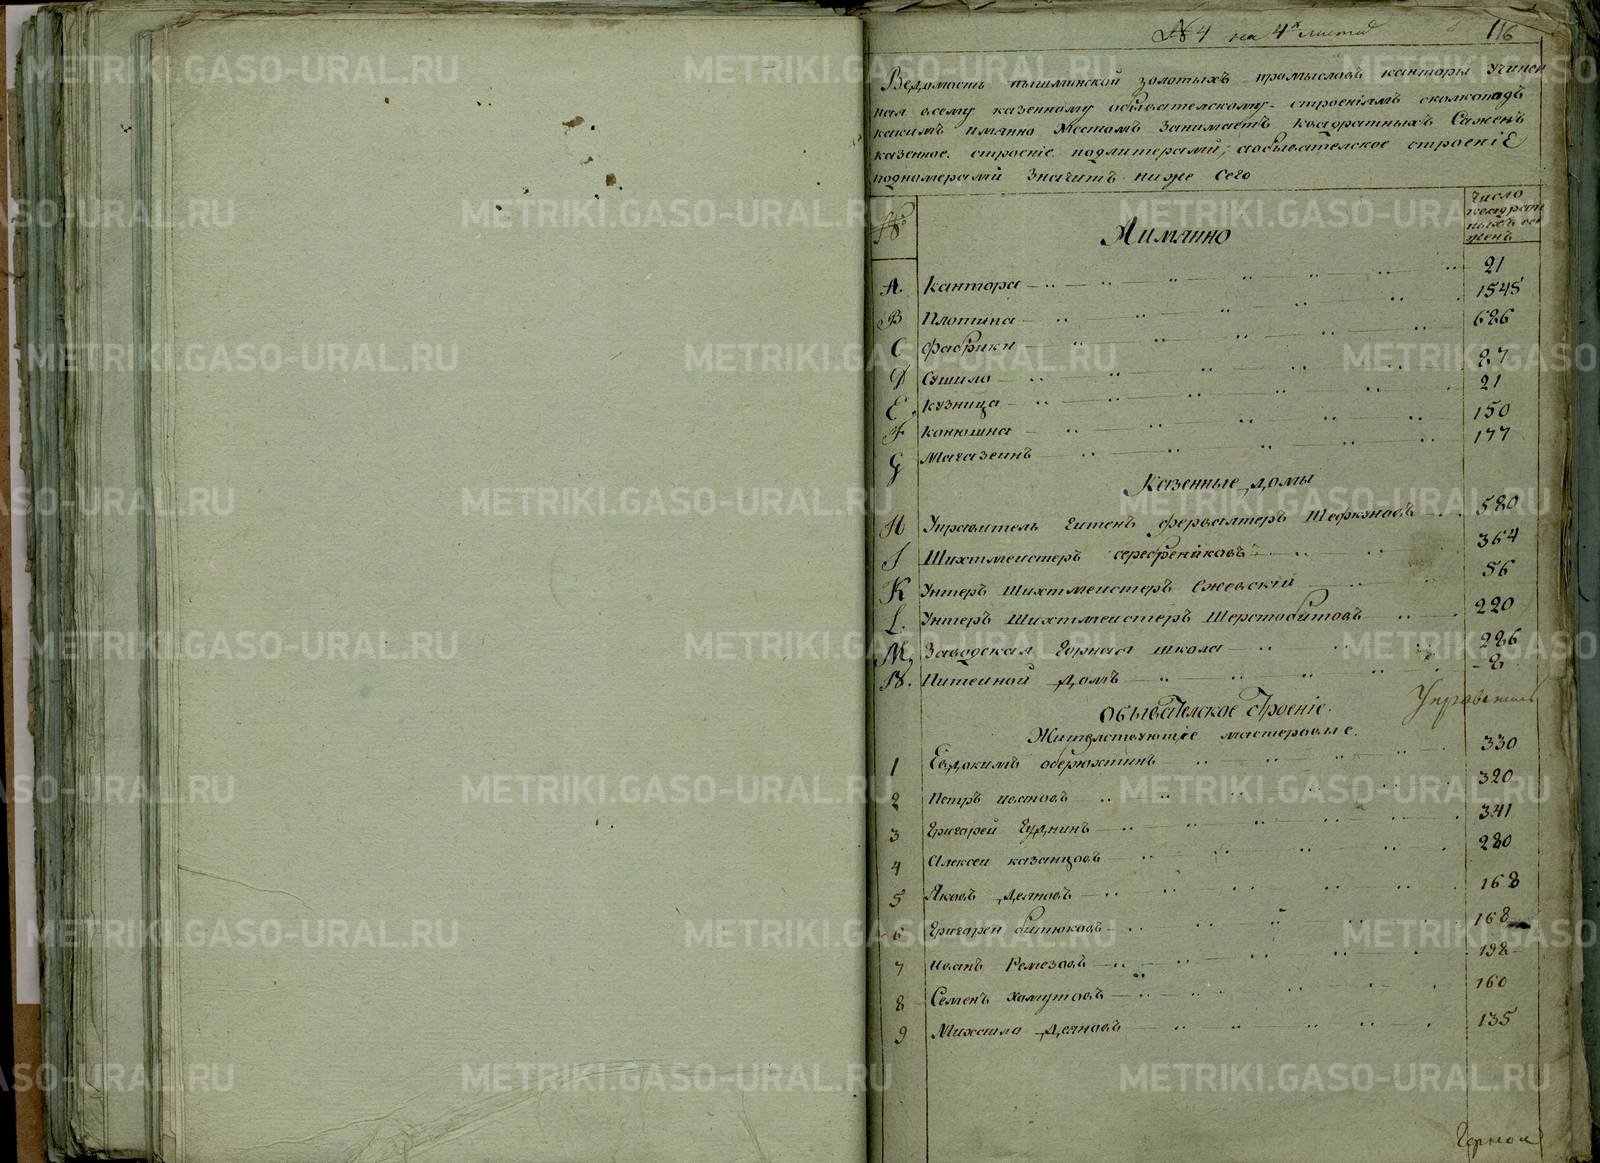 № 4 на 4х листах
116
Ведомость пышминской золотыхъ промысловъ канторы Учинен
ная всему казенному обывателскому строениямъ сколко подъ
какимъ имянно Местомъ Занимаетъ квадратныхъ Саженъ
казенное строение подлитерами, аобывателское строениЕ
подномерами Значитъ ниже сего
№
Аимянно
Число
квадрат
ныхъ са
женъ
А. Кантора 21
В Плотина 1545
С Фабрики 686
D Сушило 27
E. Кузница 21
F Конюшна 150
G Магазеинъ 177
Казенные домы
H Управитель Гитенъ фервалтеръ Шефкуновъ 580
I Шихтмеистеръ серебрениковъ 364
K Унтеръ Шихтмеистеръ Ежевский 56
L. Унтеръ Шихтмеистеръ Шерстобитовъ 220
M, Заводская Горная школа 286
N. Питейной домъ 8
Обывателское строение.
Управитель
Жителствующие мастеровые.
1 Евдокимъ оберюхтинъ 330
2 Петръ ивановъ 320
3 Григорей Гуднинъ 341
4 Алексеи казанцовъ 280
5 Яковъ деяновъ 168
6 Григореи битюковъ 168
7 иванъ Ремезовъ 198
8 Семенъ хомутовъ 160
9 Михаило деяновъ 135
Горной
METRIKI.GASO-URAL.RU